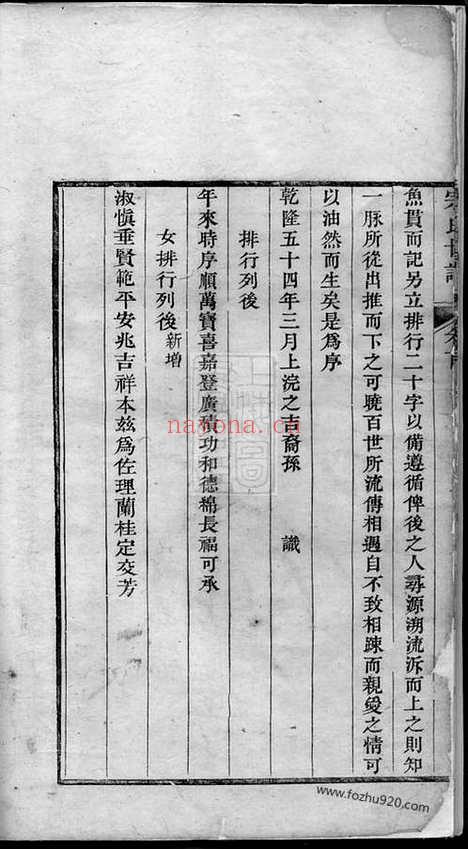 魚貫而記另立排行二十字以備遵循俾後之人尋源溯流泝而上之則知
一脉所從出推而下之可曉百世所流傳相遇自不致相踈而親愛之情可
以油然而生矣是爲序
乾隆五十四年三月上浣之吉裔孫 識
排行列後
年來時序順萬寶喜嘉登廣積功和德綿長福可承
女排行列後新增
淑愼垂賢範平安兆吉祥本玆爲佐理蘭桂定交芳
nayona.cn
www.fozhu920.com